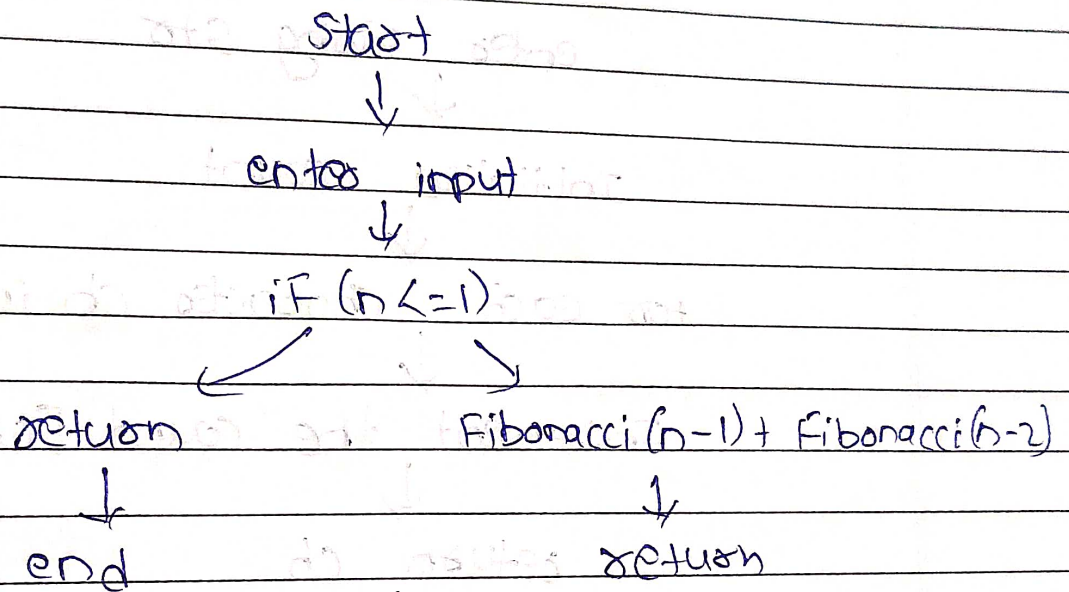 Start
enter input
if (n <= 1)
return Fibonacci (n-1) + Fibonacci (n-2)
end return